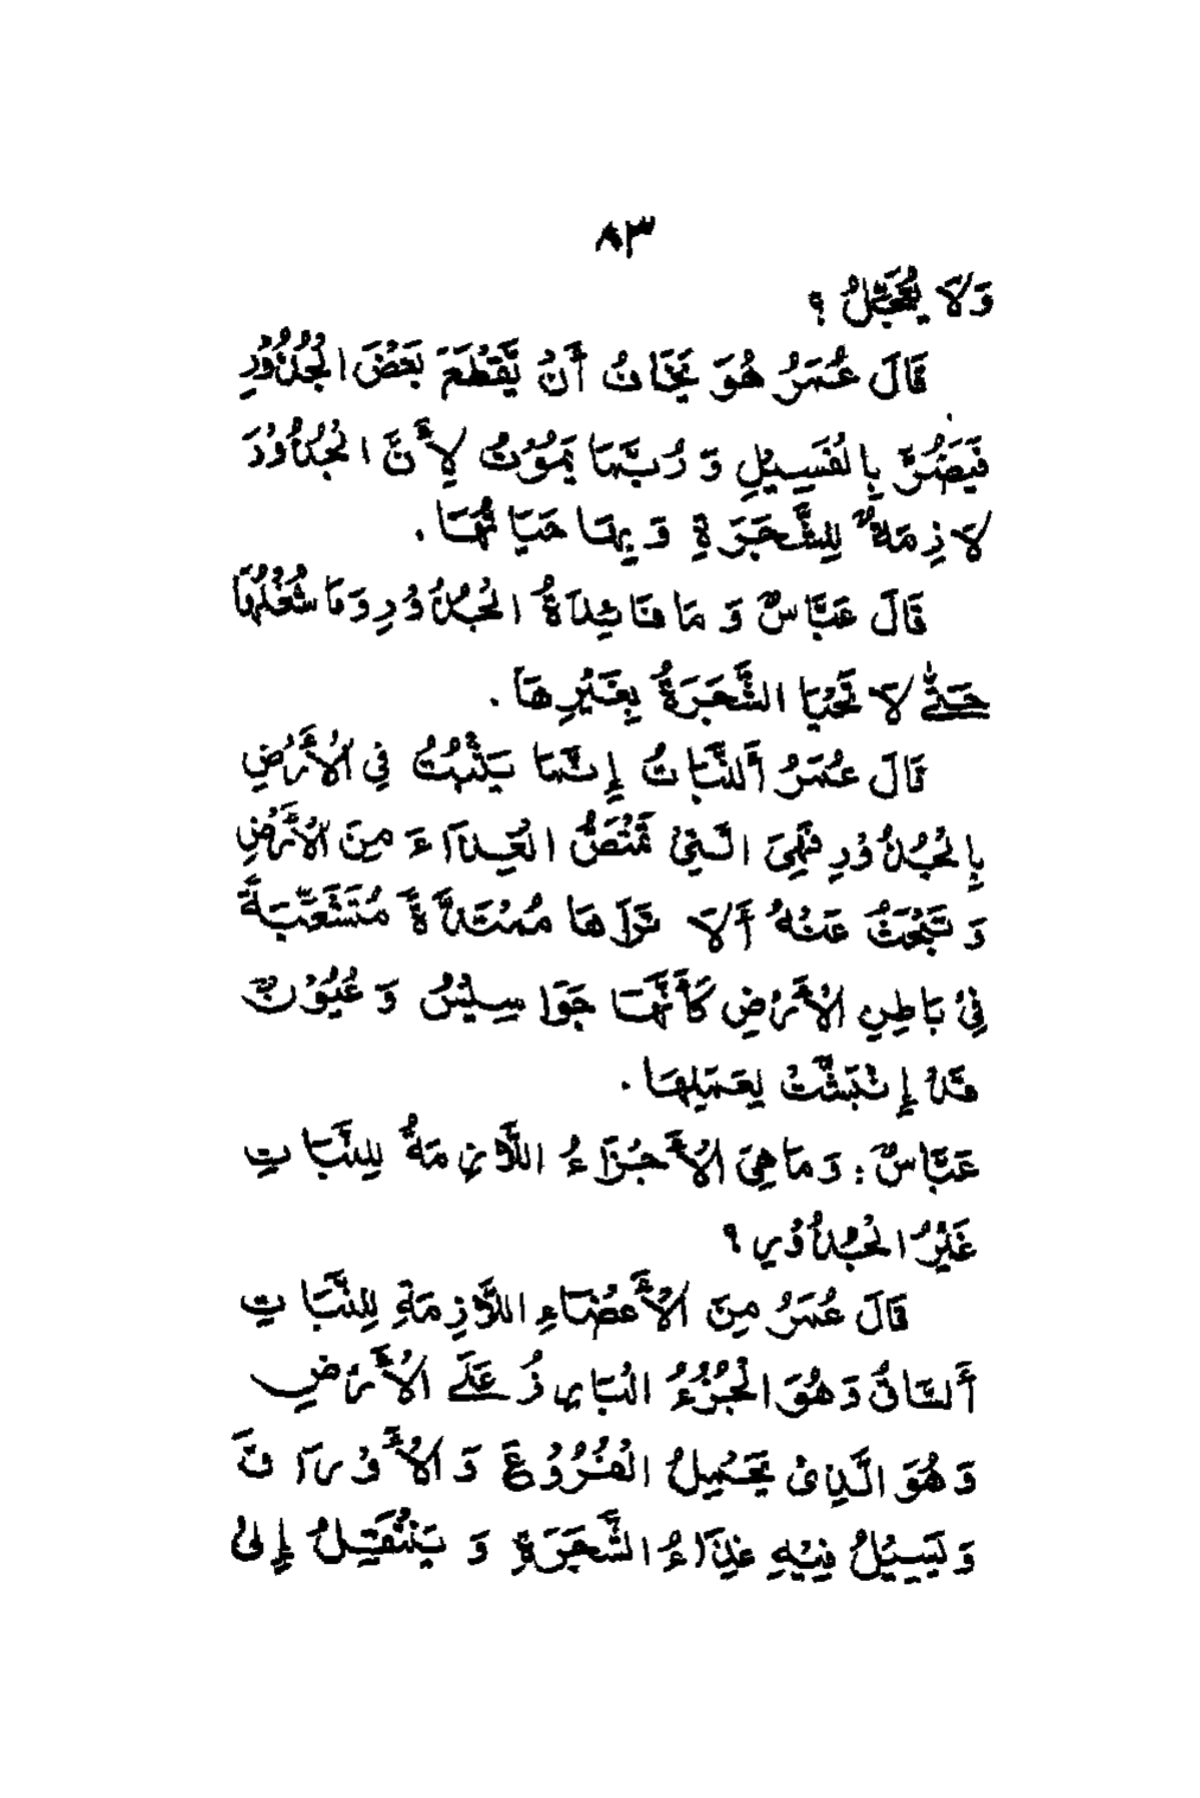 ٨٣
وَلَا يُعَجِّلُ ؟
قَالَ عُمَرُ هُوَ يَخَافُ أَنْ يَّقْطَعَ بَعْضَ الْجُذُوْرِ
فَيَضُرَّ بِالْفَسِيْلِ وَ رُبَّمَا يَمُوْتُ لِأَنَّ الْجُذُوْرَ
لَازِمَةٌ لِلشَّجَرَةِ وَ بِهَا حَيَاتُهَا .
قَالَ عَبَّاسٌ وَ مَا فَائِدَةُ الْجُذُوْرِ وَمَا شُغْلُهَا
حَتّٰى لَا تَحْيَا الشَّجَرَةُ بِغَيْرِهَا .
قَالَ عُمَرُ أَلنَّبَاتُ إِنَّمَا يَثْبُتُ فِي الْأَرْضِ
بِالْجُذُوْرِ فَهِيَ الَّتِيْ تَمْتَصُّ الْغِذَآءَ مِنَ الْأَرْضِ
وَ تَبْحَثُ عَنْهُ أَلَا تَرَاهَا مُمْتَدَّةً مُتَشَعِّبَةً
فِيْ بَاطِنِ الْأَرْضِ كَأَنَّهَا جَوَاسِيْسُ وَ عُيُوْنٌ
قَدْ إِنْبَثَّتْ لِعَمَلِهَا .
عَبَّاسٌ : وَمَا هِيَ الْأَجْزَاءُ اللَّازِمَةُ لِلنَّبَاتِ
غَيْرُ الْجُذُوْرِ ؟
قَالَ عُمَرُ مِنَ الْأَعْضَاءِ اللَّازِمَةِ لِلنَّبَاتِ
أَلسَّاقُ وَهُوَ الْجُزْءُ الْبَارِزُ عَلَى الْأَرْضِ
وَ هُوَ الَّذِىْ يَحْمِلُ الْفُرُوْعَ وَ الْأَوْرَاقَ
وَ يَسِيْلُ فِيْهِ غِذَاءُ الشَّجَرَةِ وَ يَنْتَقِلُ إِلىٰ